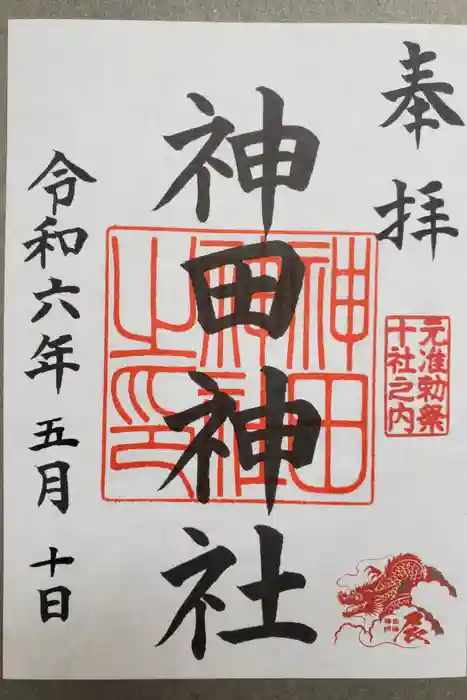 奉拝
元准勅祭
十社之内
辰
神田神社
神田
神社
之印
令和六年五月十日